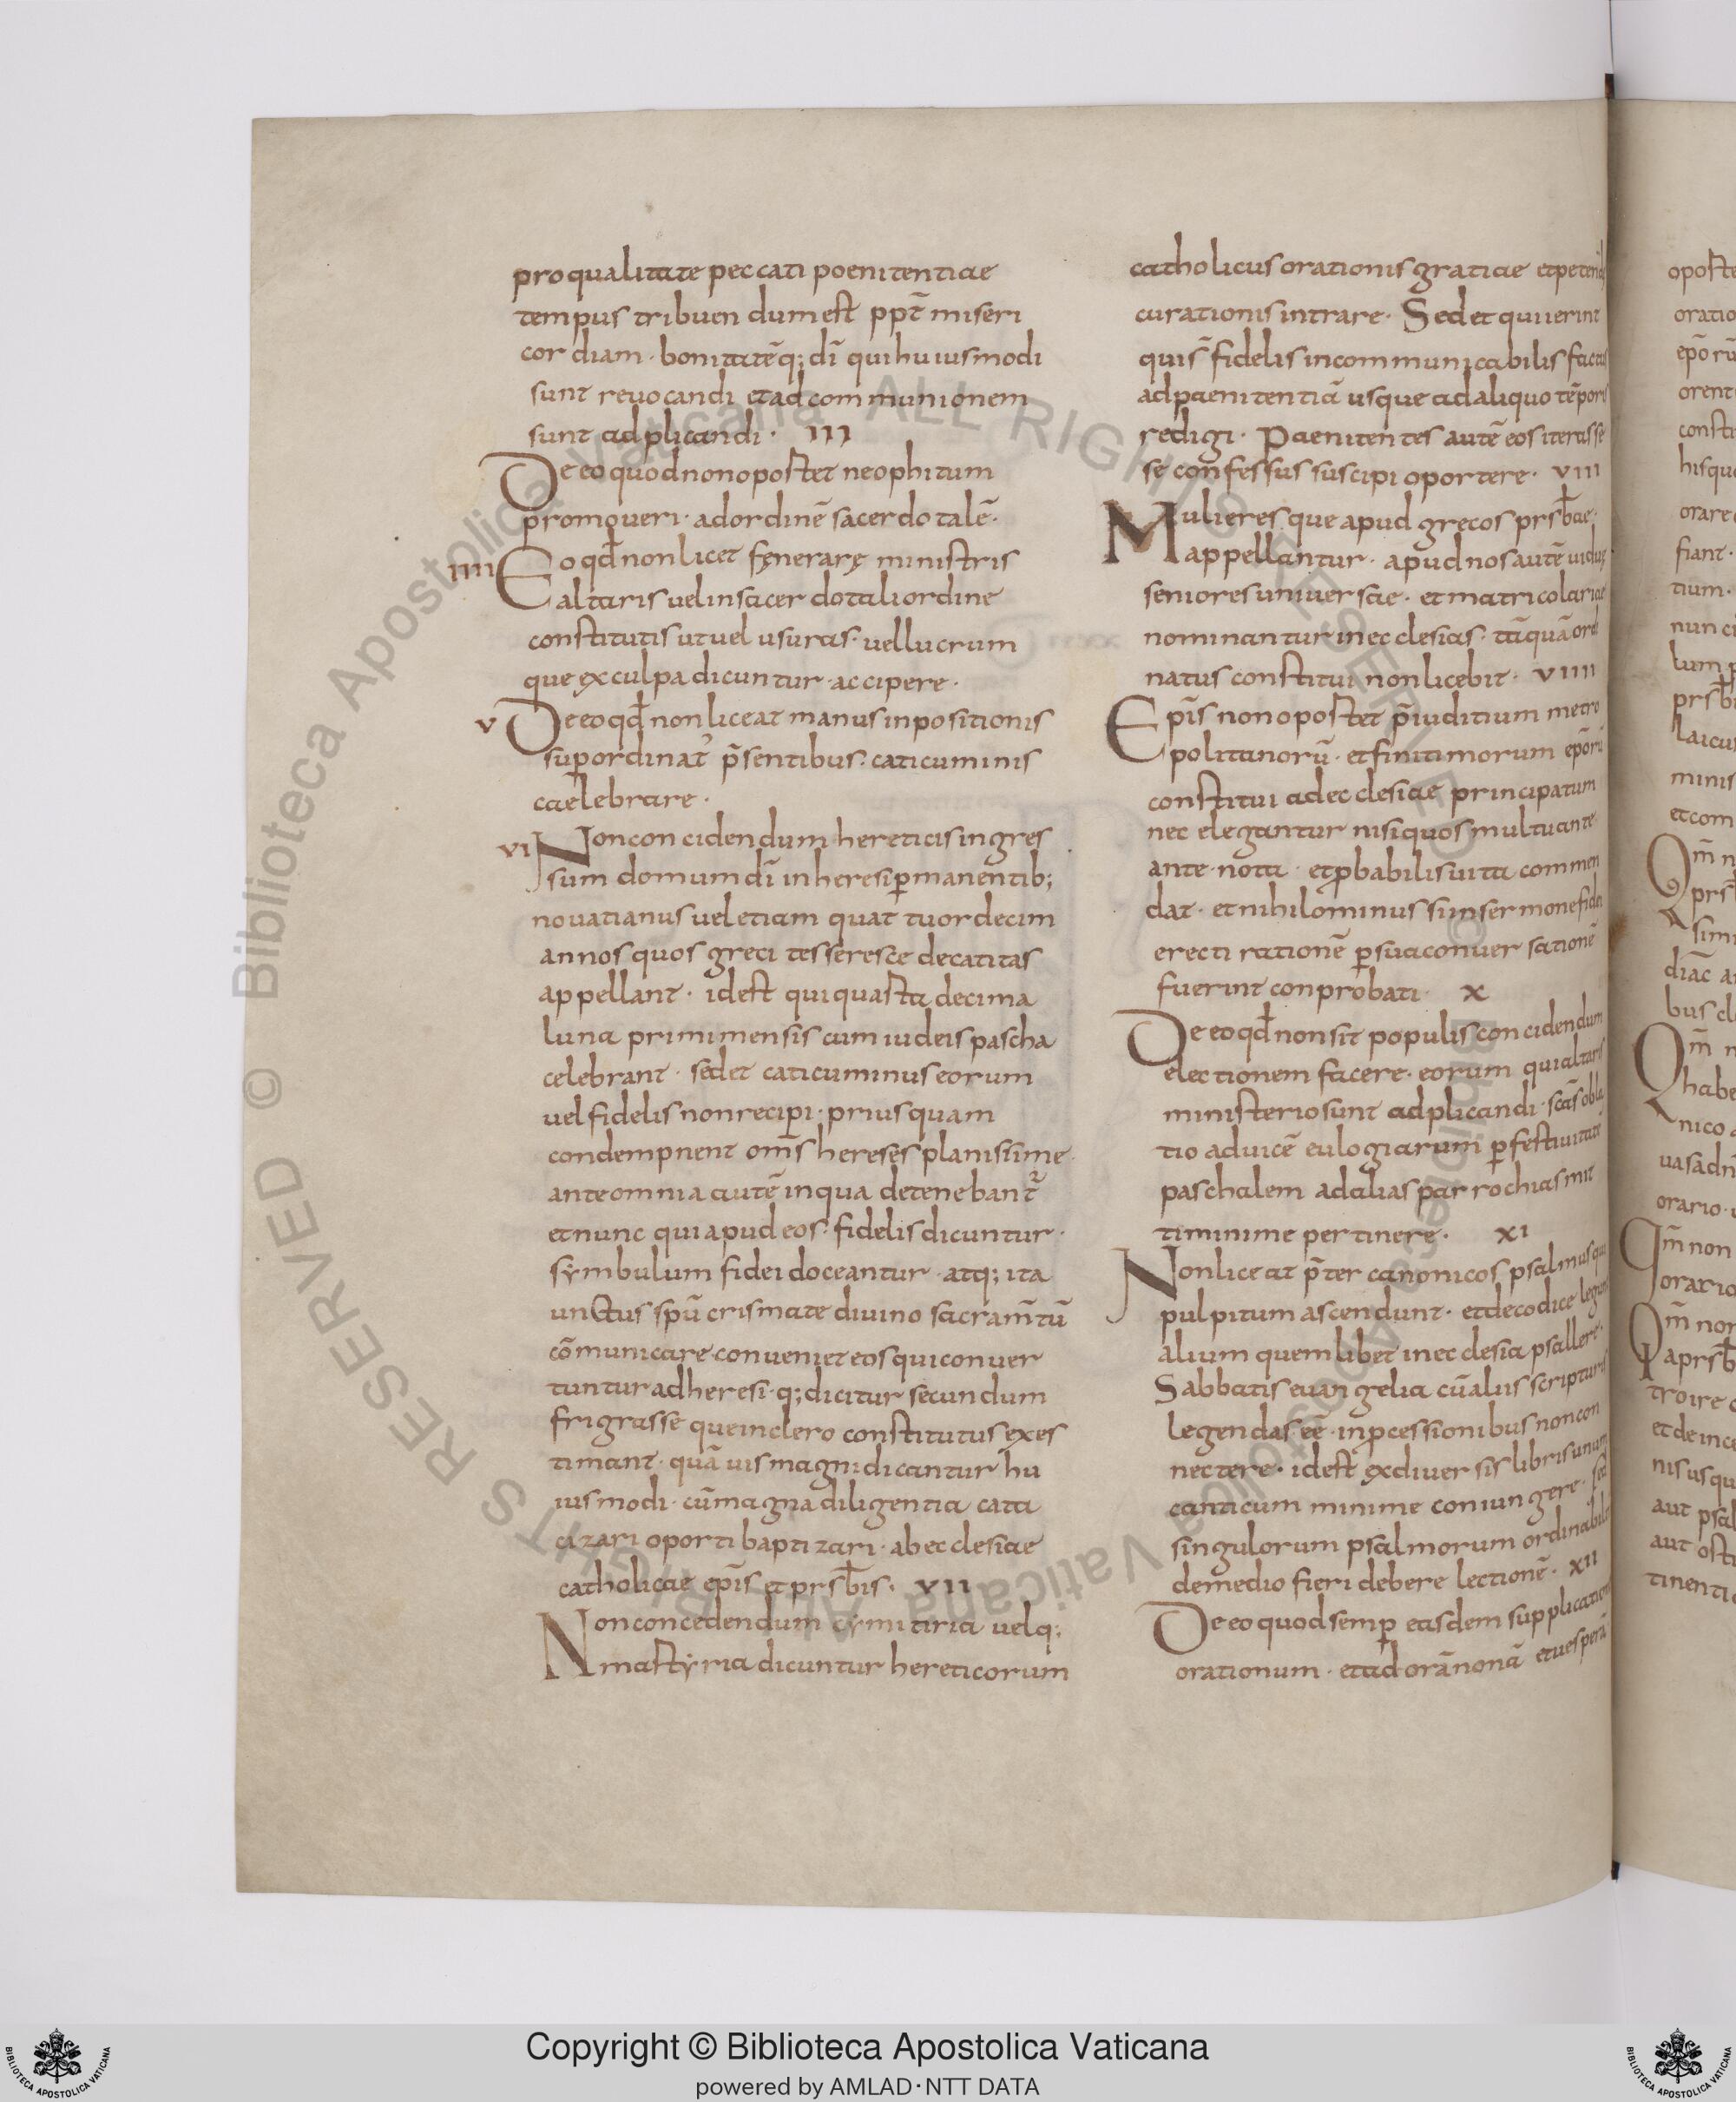 pro qualitate peccati poenitentiae
tempus tribuendum est ppt̄ miseri
cordiam · bonitatēq; dī qui huiusmodi
sunt revocandi et ad communionem
sunt adplicandi · III
De eo quod non oportet neophitum
promoueri · ad ordinē sacerdotalē ·
IIII Eo qđ non licet fęnerarę ministris
altaris uel in sacerdotali ordine
constitutis ut uel usuras · uel lucrum
que ex culpa dicuntur · accipere ·
V De eo qđ non liceat manus inpositionis
sup ordinat̄ p̄sentibus · caticuminis
caelebrare ·
VI Non concidendum hereticis ingres
sum domum dī in heresi permanentib;
nouatianus uel etiam quattuordecim
annos quos greci tesseresce decatitas
appellant · id est qui quarta decima
luna primi mensis cum iudeis pascha
celebrant · sed et caticuminus eorum
uel fidelis non recipi · priusquam
condempnent om̄s hereses planissime ·
ante omnia autē in qua detenebant̄
et nunc qui apud eos · fidelis dicuntur ·
symbulum fidei doceantur · atq; ita
unctus spū crismate diuino sacram̄tū
cōmunicare conueniet eos qui conuer
tuntur ad heresi · q; dicitur secundum
frigrasse que in clero constitutus exes
timant · quā uis magni dicantur hu
iusmodi · cū magna diligentia cata
cizari oporti baptizari · ab ecclesiae
catholicae ep̄is et prsb̄is · VII
Non concedendum cymitiria uelq;
martyria dicuntur hereticorum
catholicus orationis gratiae et petend
curationis intrare · Sed et qui ierint
quis fidelis incommunicabilis factus
ad paenitentiā usque ad aliquo tēporis
redigi · Paenitentes autē eos iterasse
se confessus suscipi oportere · VIII
Mulieres que apud grecos prsb̄ae
appellantur · apud nos autē uiduę
seniores uniuersae · et matricolariae
nominantur in ecclesias · tāquā ordi
natus constitui non licebit · VIIII
Ep̄is non oportet p̄iuditium metro
politanorū · et finitimorum ep̄orū
constitui ad ecclesiae principatum
nec elegantur nisi quos multu ante
ante nota · et probabilis uita commen
dat · et nihilominus si in sermone fidei
erecti rationē per sua conuersationē
fuerint conprobati · X
De eo qđ non sit populis concidendum
electionem facere · eorum qui altaris
ministerio sunt adplicandi · scās obla
tio ad uicē eulogiarum per festiuitate
paschalem ad alias parrochias mit
ti minime pertinere · XI
Non liceat p̄ter canonicos psalmus qui
pulpitum ascendunt · et de codice legunt
alium quemlibet in ecclesia psallere ·
Sabbatis euangelia cū aliis scripturis
legendas eē · in processionibus non con
nectere · id est ex diuersis libris unum
canticum minime coniungere · sed
singulorum psalmorum ordinabilit
de medio fieri debere lectionē · XII
De eo quod semper easdem supplication
orationum · et ad orā nonā et uesperā
Copyright © Biblioteca Apostolica Vaticana
powered by AMLAD·NTT DATA